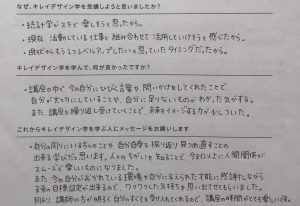 なぜ、キレイデザイン学を受講しようと思いましたか?
・統計学がスキで楽しそうと思ったから。
・現在活動している仕事と組み合わせて活用していけそうと感じたから。
・現状からもう1つレベルアップしたいと思っていたタイミングだったから。
キレイデザイン学を学んで、何が良かったですか?
・講座の中で今の自分にひびく言葉や問いかけをしてくれたことで、
自分が大切にしていることや、自分に足りないものがわかった気がする。
また、講座を繰り返し受けていくことで、未来をイメージする力が少しついた。
これからキレイデザイン学を学ぶ人にメッセージをお願いします
・自分の周りにいる方々のことや、自分自身を振り返り見つめ直すことの
出来る学びだと思います。人とのちがいを知ること、今まで以上に人間関係が
スムーズで楽しいものになりました。
また、今の自分がおかれている環境や自分に与えられた才能に感謝しながら
未来の目標設定が出来るので、ワクワクした気持ちを思い出させてもらいました。
何より、講師の方が明るく自分のすべてを受け入れてくれるので、講座の時間がとても楽しいです。